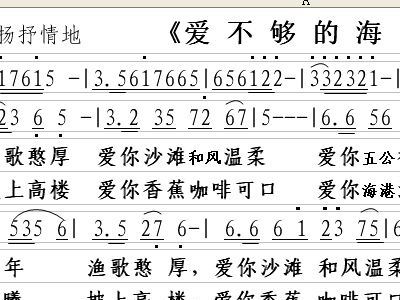 扬抒情地 《爱不够的海
17615 -|3.5617665|656122-|332321-|
23 6 5 -|3.2 35 72 67|5---|6.6 56
歌憨厚 爱你沙滩和风温柔 爱你五公
上高楼 爱你香蕉咖啡可口 爱你海港
535 6|3.5 27 6-|6.6 6 1 23 75|6
年 渔歌憨 厚，爱你沙滩 和风温柔